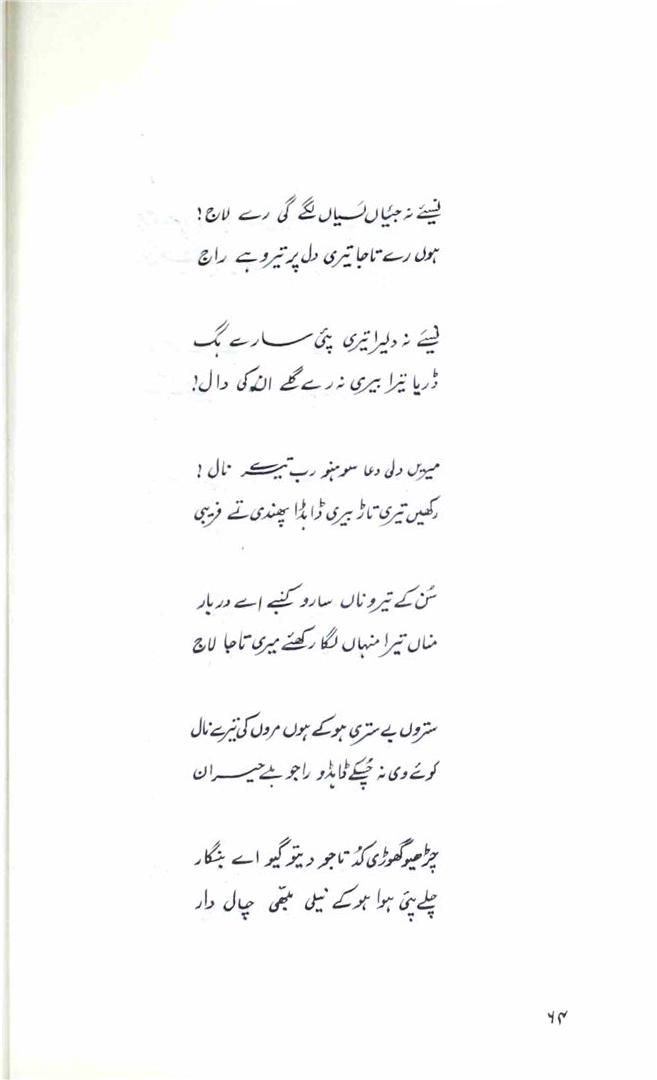 نسیئے نہ جئیاں نَسیاں لگے گی رے لاج!
ہوں رے تاجا تیری دل پر تیرو ہے راج
نسیئے نہ دلیرا تیری پئی سارے ہک
ڈریا تیرا بیری نہ رے گلے کی دال!
میریں دلی دعا سوہنو رب تیرے نال!
رکھیں تیری تاڑ بیری ڈاہڈا پھندی تے فریبی
سُن کے تیرو ناں سارو کنبے اے دربار
مناں تیرا منہاں لگا رکھئے میری تاجا لاج
ستروں بے ستری ہو کے ہوں مروں کی تیرے نال
کوئے وی نہ چُسکے ڈاہڈو راجو بلے حیران
چڑھیو گھوڑی کدُ تاجو دیتو گیو اے بنگار
چلے پئی ہوا ہو کے نیلی چال دار
۶۴